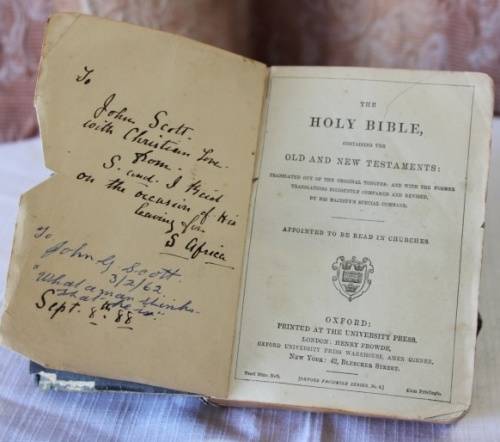 To
John Scott.
with Christian love
from
S. and J Reid
on the occasion of his
leaving for
S Africa
To
John G Scott.
3/2/62
"What a man thinks
that he is."
Sept. 8th 88
THE
HOLY BIBLE,
CONTAINING THE
OLD AND NEW TESTAMENTS:
TRANSLATED OUT OF THE ORIGINAL TONGUES: AND WITH THE FORMER
TRANSLATIONS DILIGENTLY COMPARED AND REVISED,
BY HIS MAJESTY'S SPECIAL COMMAND.
APPOINTED TO BE READ IN CHURCHES
OXFORD:
PRINTED AT THE UNIVERSITY PRESS.
LONDON: HENRY FROWDE,
OXFORD UNIVERSITY PRESS WAREHOUSE, AMEN CORNER.
NEW YORK: 42, BLEECKER STREET.
8vo.
[OXFORD FACSIMILE SERIES, No. 6]
Cum Privilegio.